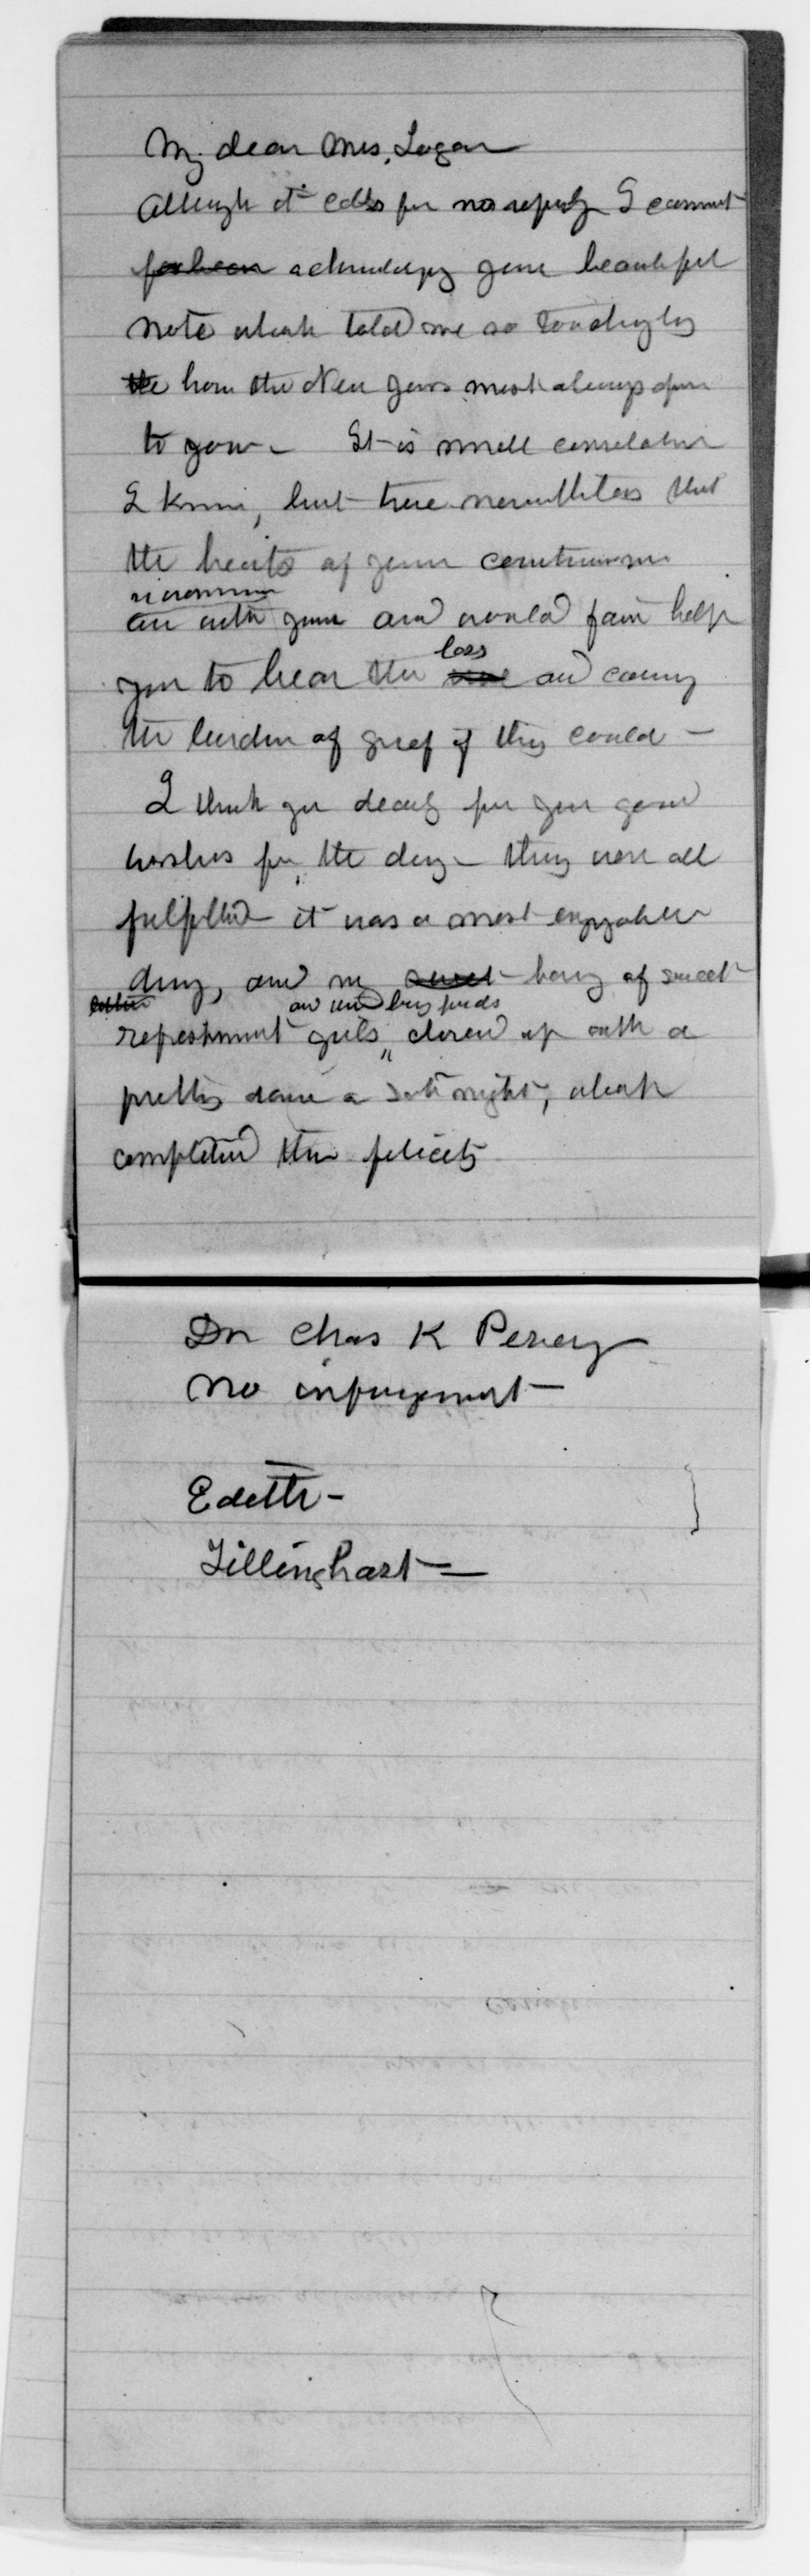 My dear Mrs. Logan
Although it calls for no reply I cannot
forbear acknowledging your beautiful
note which told me so touchingly
the how the New Years must always open
to you - It is small consolation
I know, but true nevertheless that
the hearts of your countrymen
are with you and would fain help
loss
you to bear the and carry
the burden of grief if they could -
I thank you dearly for your good
wishes for the day - they were all
fulfilled - it was a most enjoyable
day, and my sweet bevy of sweet
and boy friends
refreshment girls closed up with a
pretty dance at night, which
completed their felicity
Dr Chas K Percy
No infringement -
Edith -
Tillinghast -